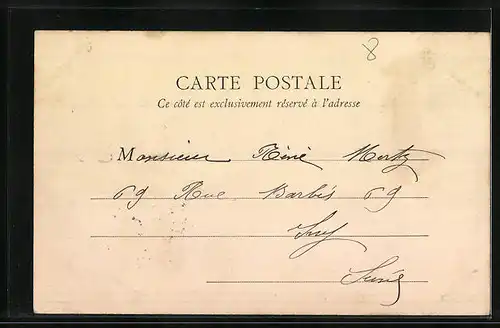 8
CARTE POSTALE
Ce côté est exclusivement réservé à l'adresse
Monsieur Réné Mertz
69 Rue Barbès 69
Ivry
Seine